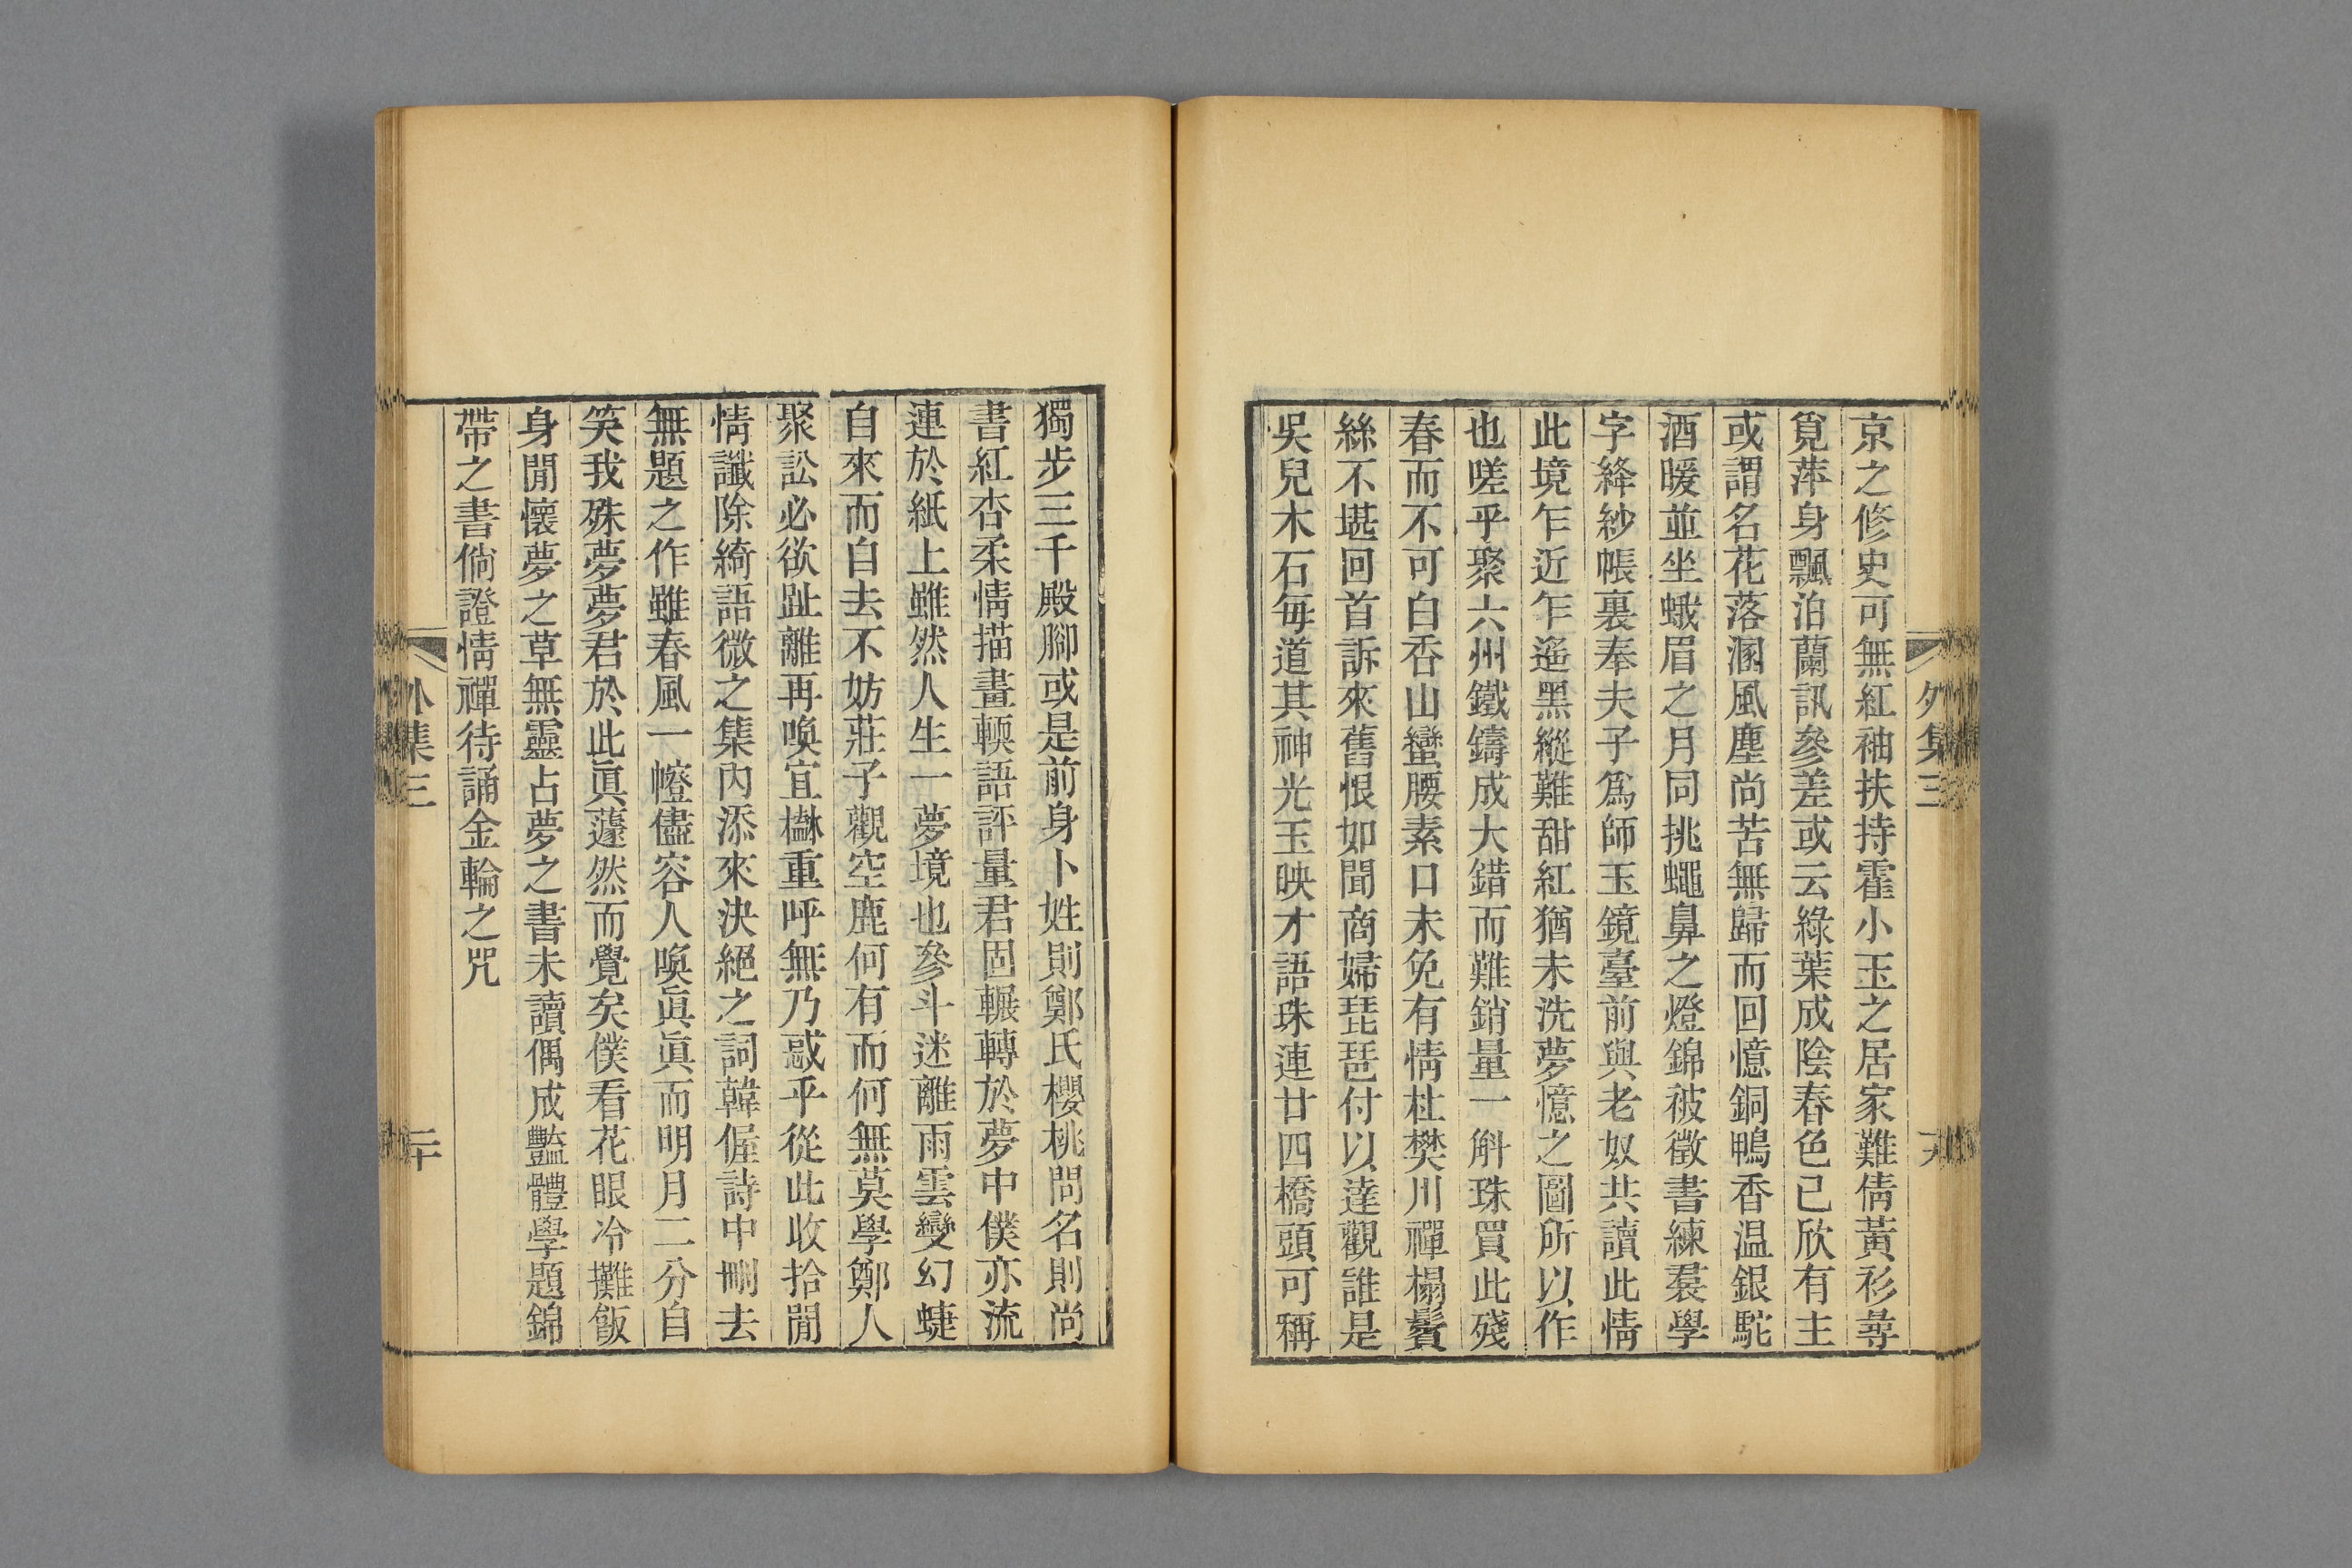 京之修史可無紅袖扶持霍小玉之居家難倩黃衫尋
覓萍身飄泊蘭訊參差或云綠葉成陰春色已欣有主
或謂名花落溷風塵尚苦無歸而回憶銅鴨香温銀駝
酒暖並坐蛾眉之月同挑蠅鼻之燈錦被徵書練裠學
字絳紗帳裏奉夫子爲師玉鏡臺前與老奴共讀此情
此境乍近乍遙黑縱難甜紅猶未洗夢憶之圖所以作
也嗟乎聚六州鐵鑄成大錯而難銷量一斛珠買此殘
春而不可白香山蠻腰素口未免有情杜樊川禪榻鬢
絲不堪回首訴來舊恨如聞商婦琵琶付以達觀誰是
吳兒木石每道其神光玉映才語珠連廿四橋頭可稱
外集三
獨步三千殿腳或是前身卜姓則鄭氏櫻桃問名則尚
書紅杏柔情描畫輭語評量君固輾轉於夢中僕亦流
連於紙上雖然人生一夢境也參斗迷離雨雲變幻蜨
自來而自去不妨莊子觀空鹿何有而何無莫學鄭人
聚訟必欲趾離再喚宜櫯重呼無乃惑乎從此收拾閒
情讖除綺語微之集內添來決絕之詞韓偓詩中刪去
無題之作雖春風一㡧儘容人喚眞眞而明月二分自
笑我殊夢夢君於此眞蘧然而覺矣僕看花眼冷攤飯
身閒懷夢之草無靈占夢之書未讀偶成豔體學題錦
帶之書倘證情禪待誦金輪之咒
外集三
二十